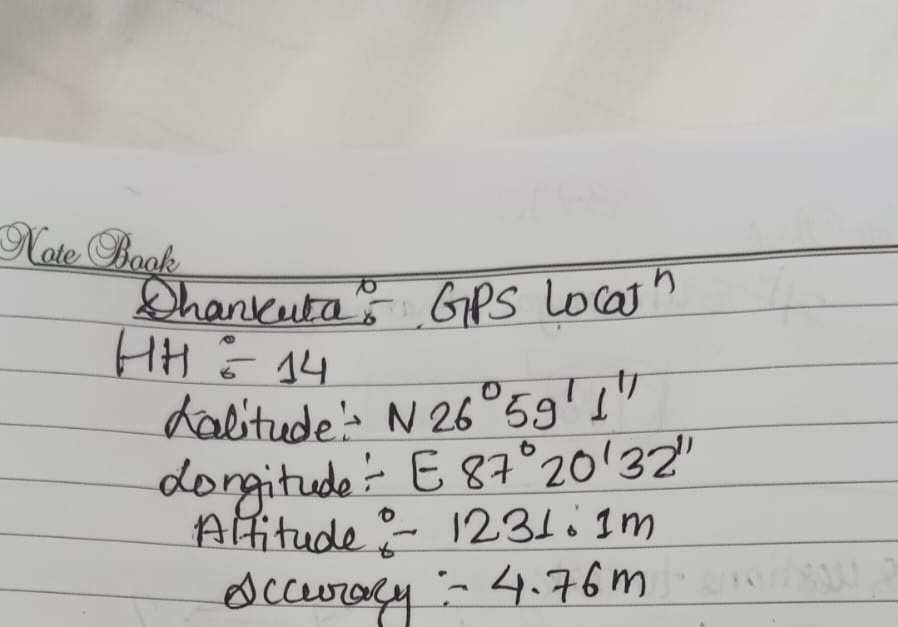 Note Book
Dhankuta :- GPS Locatn
HH :- 14
Latitude :- N 26° 59' 1"
Longitude :- E 87° 20' 32"
Altitude :- 1231.1m
Accuracy :- 4.76m